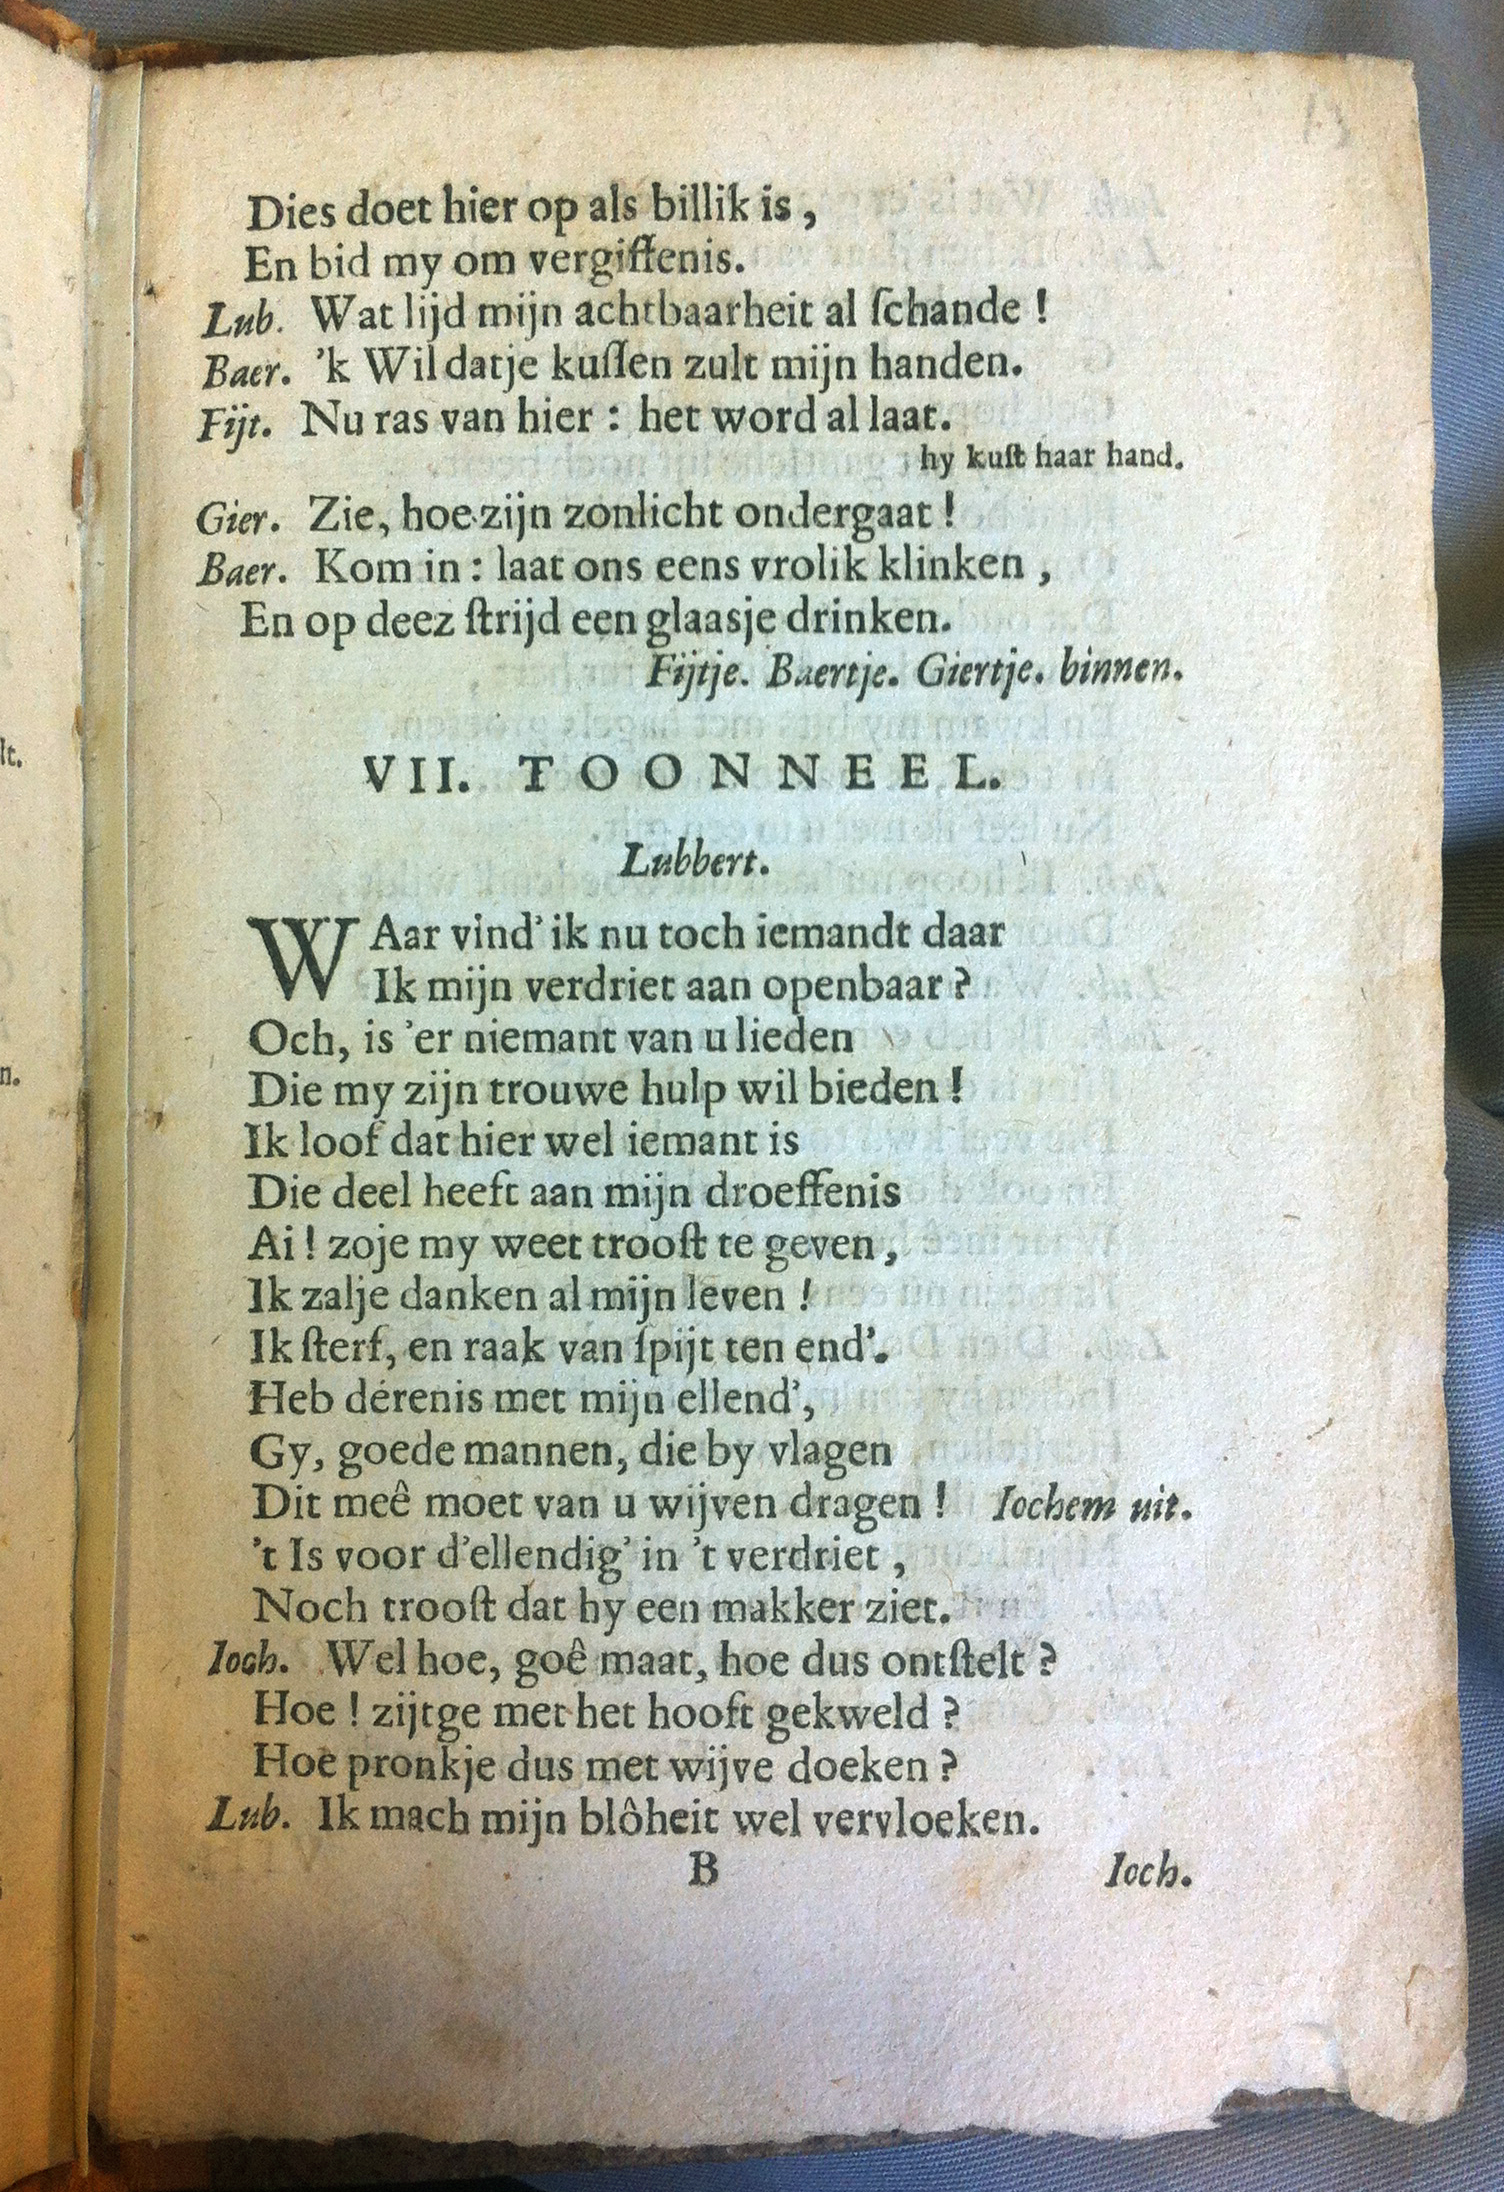 Dies doet hier op als billik is,
En bid my om vergiffenis.
Lub. Wat lijd mijn achtbaarheit al ſchande!
Baer. 'k Wil datje kuſſen zult mijn handen.
Fijt. Nu ras van hier: het word al laat.
hy kuſt haar hand.
Gier. Zie, hoe zijn zonlicht ondergaat!
Baer. Kom in: laat ons eens vrolik klinken,
En op deez ſtrijd een glaasje drinken.
Fijtje. Baertje. Giertje. binnen.
VII. TOONNEEL.
Lubbert.
WAar vind' ik nu toch iemandt daar
Ik mijn verdriet aan openbaar?
Och, is 'er niemant van u lieden
Die my zijn trouwe hulp wil bieden!
Ik loof dat hier wel iemant is
Die deel heeft aan mijn droeffenis
Ai! zoje my weet trooſt te geven,
Ik zalje danken al mijn leven!
Ik ſterf, en raak van ſpijt ten end'.
Heb dérenis met mijn ellend',
Gy, goede mannen, die by vlagen
Dit meê moet van u wijven dragen! Iochem uit.
't Is voor d'ellendig' in 't verdriet,
Noch trooſt dat hy een makker ziet.
Ioch. Wel hoe, goê maat, hoe dus ontſtelt?
Hoe! zijtge met het hooft gekweld?
Hoe pronkje dus met wijve doeken?
Lub. Ik mach mijn blôheit wel vervloeken.
B Ioch.